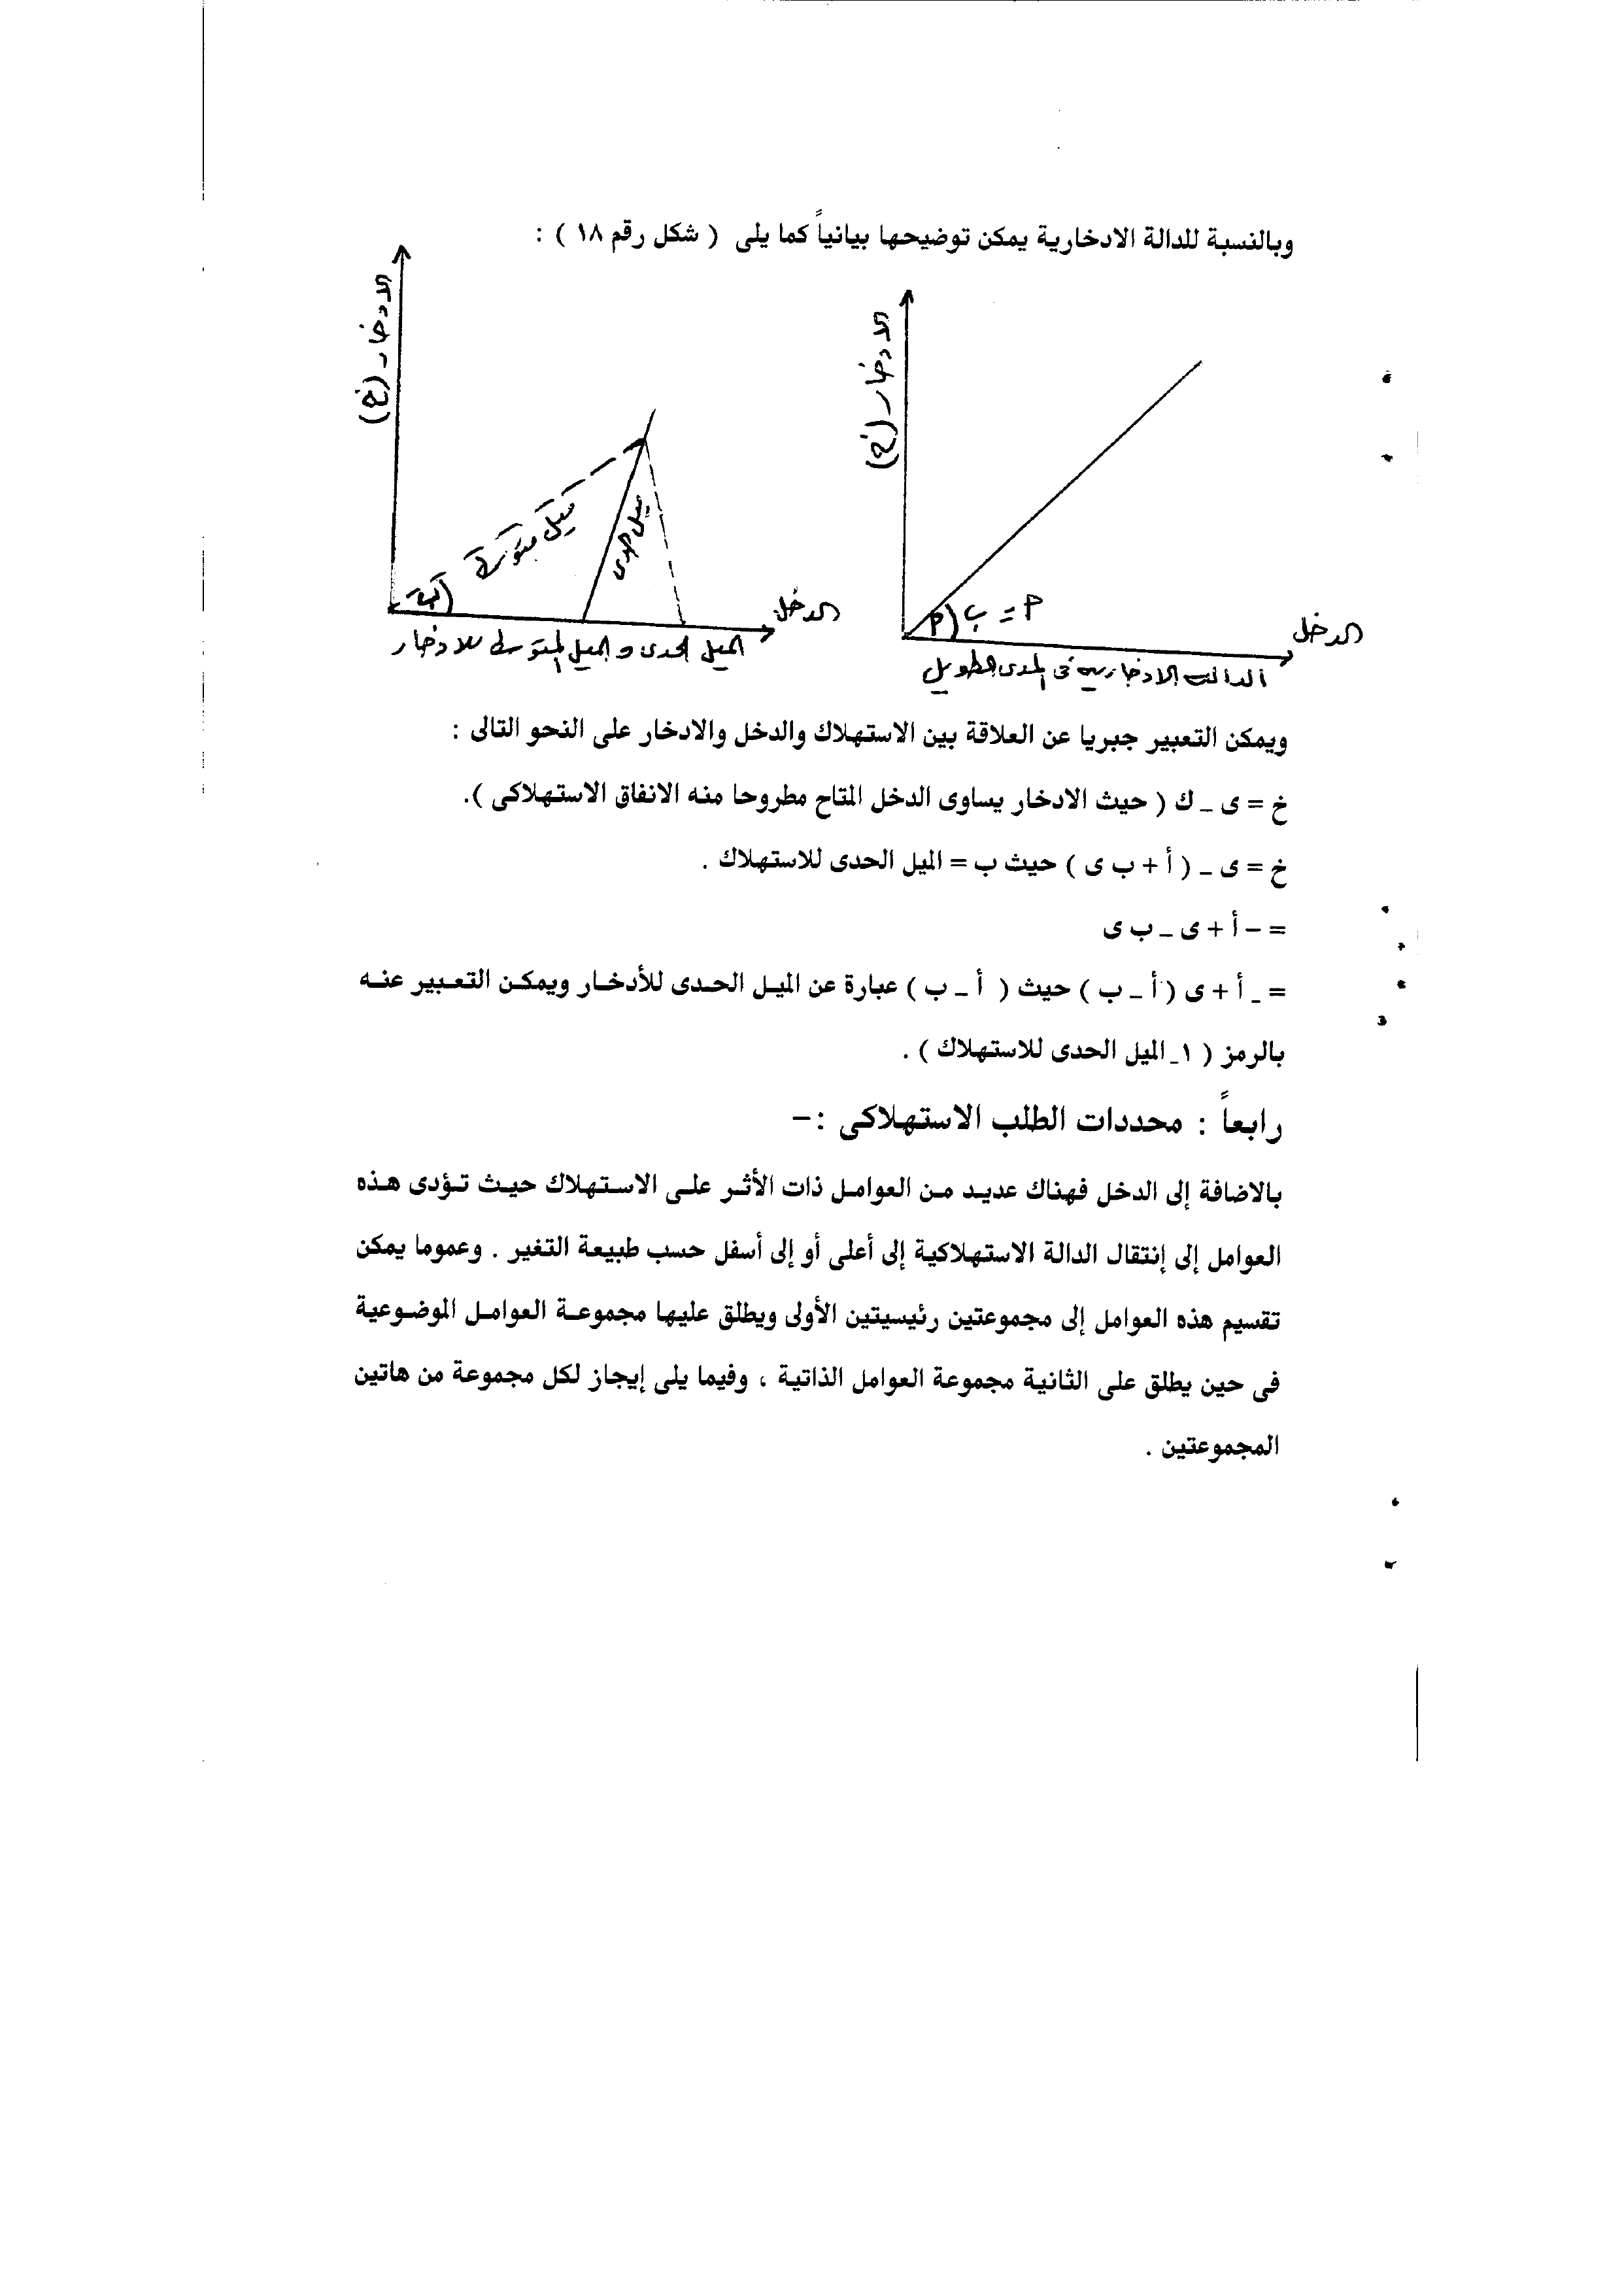 وبالنسبة للدالة الادخارية يمكن توضيحها بيانياً كما يلى ( شكل رقم ١٨ ) :
الادخار (خ)
أ = ب
أ
الدخل
الدالة الادخارية فى المدى الطويل
الادخار (خ)
ميل متوسط
ميل حدى
الدخل
الميل الحدى والميل المتوسط للادخار
ويمكن التعبير جبريا عن العلاقة بين الاستهلاك والدخل والادخار على النحو التالى :
خ = ى _ ك ( حيث الادخار يساوى الدخل المتاح مطروحا منه الانفاق الاستهلاكى ).
خ = ى _ ( أ + ب ى ) حيث ب = الميل الحدى للاستهلاك .
= – أ + ى _ ب ى
= _ أ + ى ( أ _ ب ) حيث ( أ _ ب ) عبارة عن الميل الحدى للأدخار ويمكن التعبير عنه
بالرمز ( ١_ الميل الحدى للاستهلاك ) .
رابعاً : محددات الطلب الاستهلاكى :–
بالاضافة إلى الدخل فهناك عديد من العوامل ذات الأثر على الاستهلاك حيث تؤدى هذه
العوامل إلى إنتقال الدالة الاستهلاكية إلى أعلى أو إلى أسفل حسب طبيعة التغير . وعموما يمكن
تقسيم هذه العوامل إلى مجموعتين رئيسيتين الأولى ويطلق عليها مجموعة العوامل الموضوعية
فى حين يطلق على الثانية مجموعة العوامل الذاتية ، وفيما يلى إيجاز لكل مجموعة من هاتين
المجموعتين .